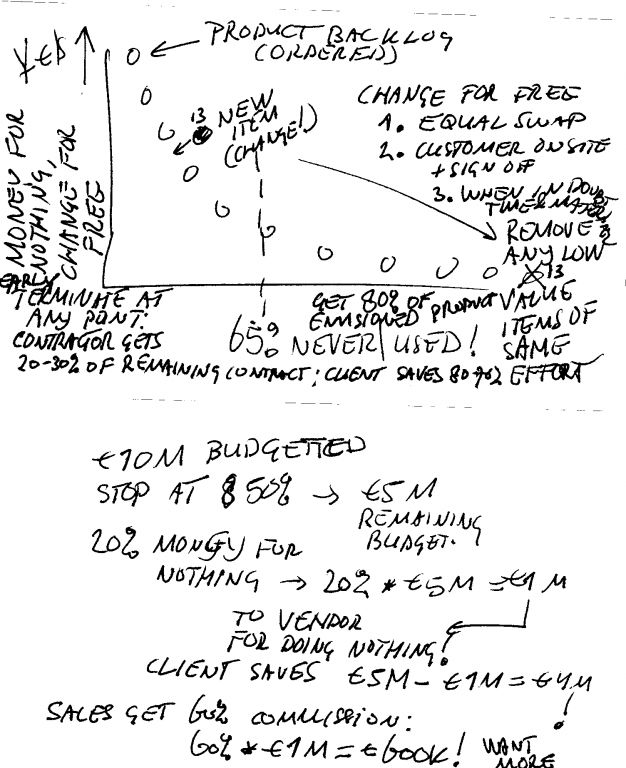 ¥€$
MONEY FOR
NOTHING,
CHANGE FOR
FREE
PRODUCT BACKLOG
(ORDERED)
13
NEW
ITEM
(CHANGE!)
CHANGE FOR FREE
1. EQUAL SWAP
2. CUSTOMER ONSITE
+ SIGN OFF
3. WHEN IN DOUBT
TIME & MATER
REMOVE
ANY LOW
13
VALUE
ITEMS OF
SAME
EFFORT
EARLY
TERMINATE AT
ANY POINT:
CONTRACTOR GETS
20-30% OF REMAINING CONTRACT; CLIENT SAVES
GET 80% OF
ENVISIONED PRODUCT
65% NEVER USED!
€10M BUDGETTED
STOP AT 50% → €5M
REMAINING
BUDGET.
20% MONEY FOR
NOTHING → 20% * €5M = €1M
TO VENDOR
FOR DOING NOTHING!
CLIENT SAVES €5M - €1M = €4M
!
SALES GET 60% COMMISSION:
60% * €1M = €600K! WANT
MORE